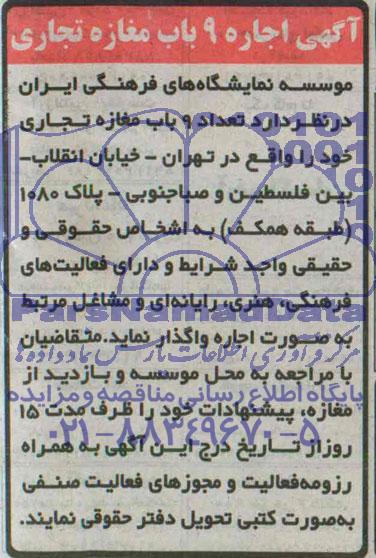 آگهی اجاره ۹ باب مغازه تجاری
موسسه نمایشگاه‌های فرهنگی ایران
در نظر دارد تعداد ۹ باب مغازه تجاری
خود را واقع در تهران - خیابان انقلاب-
بین فلسطین و صباجنوبی - پلاک ۱۰۸۰
(طبقه همکف) به اشخاص حقوقی و
حقیقی واجد شرایط و دارای فعالیت‌های
فرهنگی، هنری، رایانه‌ای و مشاغل مرتبط
ParsNamadData
به صورت اجاره واگذار نماید. متقاضیان
مرکز فرآوری اطلاعات پارس نماد داده ها
با مراجعه به محل موسسه و بازدید از
پایگاه اطلاع رسانی مناقصه و مزایده
مغازه، پیشنهادات خود را ظرف مدت ۱۵
۰۲۱-۸۸۳۴۹۶۷۰-۵
روز از تاریخ درج این آگهی به همراه
رزومه فعالیت و مجوزهای فعالیت صنفی
به‌صورت کتبی تحویل دفتر حقوقی نمایند.